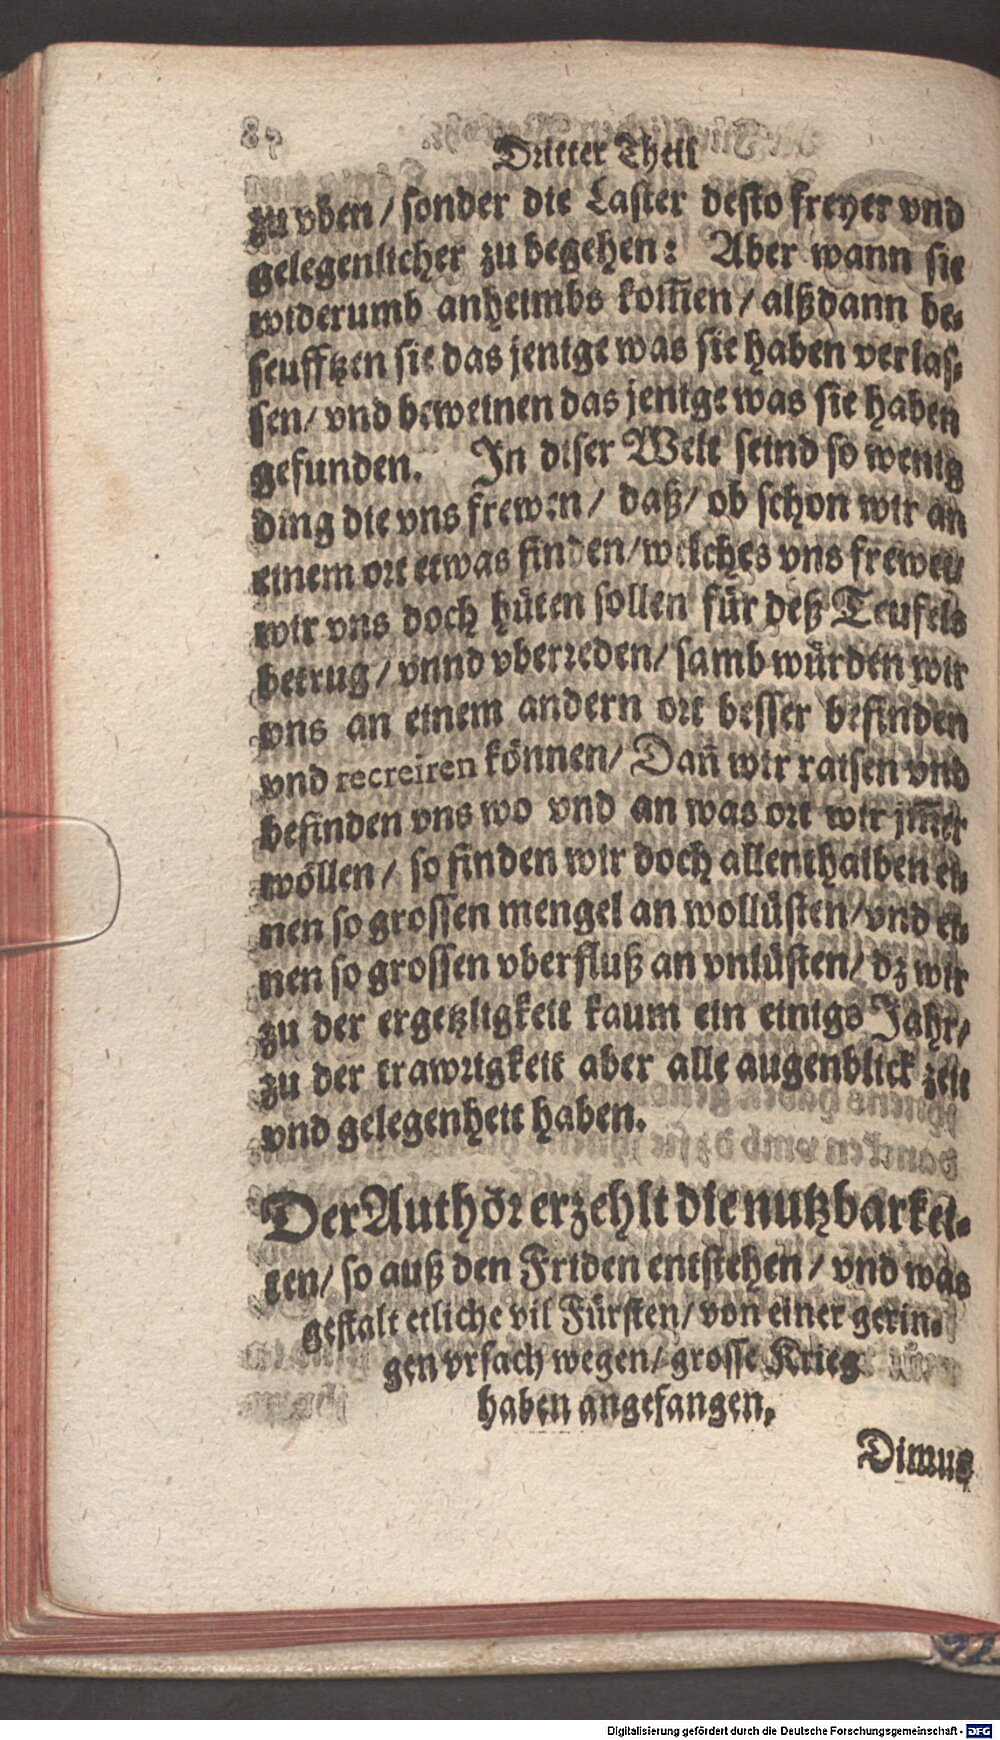 Dritter Theil
zu vben / sonder die Laster desto freyer vnd
gelegenlicher zu begehen: Aber wann sie
widerumb anheimbs kom̃en / alßdann be-
seufftzen sie das jenige was sie haben verlas-
sen / vnd beweinen das jenige was sie haben
gefunden. In diser Welt seind so wenig
ding die vns frewen / daß / ob schon wir an
einem ort etwas finden / welches vns frewet
wir vns doch hüten sollen für deß Teufels
betrug / vnnd vberreden / samb würden wir
vns an einem andern ort besser befinden
vnd recreiren können / Dañ wir raisen vnd
befinden vns wo vnd an was ort wir jm̃er
wöllen / so finden wir doch allenthalben ei-
nen so grossen mengel an wollüsten / vnd ei-
nen so grossen vberfluß an vnlüsten / dz wir
zu der ergetzligkeit kaum ein einigs Jahr /
zu der trawrigkeit aber alle augenblick zeit
vnd gelegenheit haben.
Der Authör erzehlt die nutzbarkei-
ten / so auß den Friden entstehen / vnd was
gestalt etliche vil Fürsten / von einer gerin-
gen vrsach wegen / grosse Krieg
haben angefangen.
Dimus
Digitalisierung gefördert durch die Deutsche Forschungsgemeinschaft - DFG